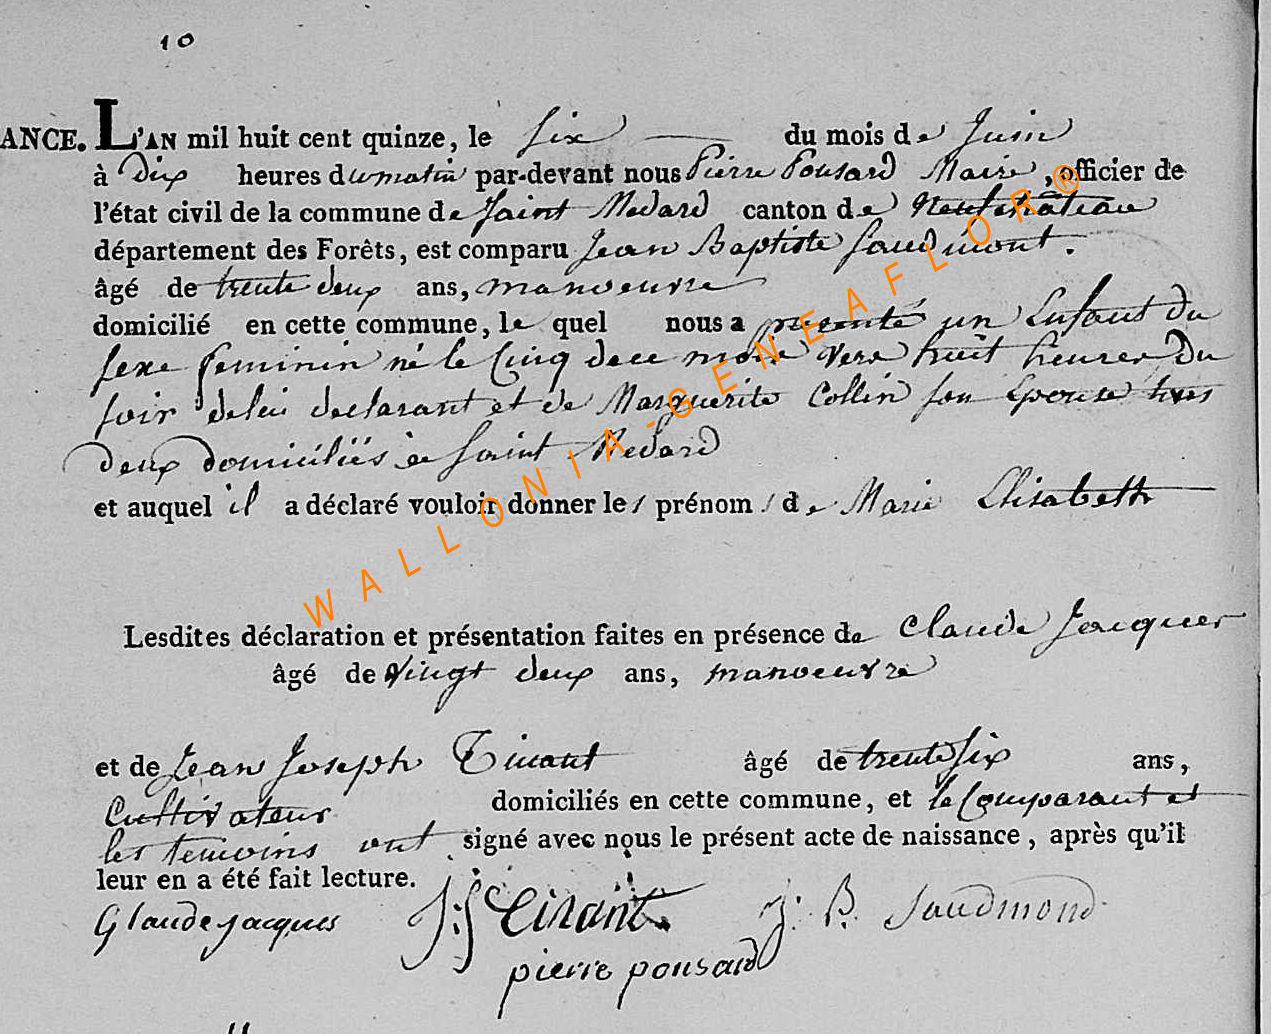 10
ANCE. L'AN mil huit cent quinze, le six du mois de Juin
à Dix heures du matin par-devant nous Pierre Pousard Maire, officier de
l'état civil de la commune de Saint Medard canton de Neufchâteau
département des Forêts, est comparu Jean Baptiste Saudmont.
âgé de trente deux ans, manoeuvre
domicilié en cette commune, le quel nous a presenté un Enfant du
sexe feminin né le Cinq de ce mois vers huit heures Du
soir de lui declarant et de Marguerite Collin son Epouse tous
deux domiciliés à Saint Medard
et auquel il a déclaré vouloir donner les prénoms de Marie Elisabeth
Lesdites déclaration et présentation faites en présence de Claude Jacques
âgé de Vingt deux ans, manoeuvre
et de Jean Joseph Tinant âgé de trente six ans,
Cultivateur domiciliés en cette commune, et le Comparant et
les temoins ont signé avec nous le présent acte de naissance, après qu'il
leur en a été fait lecture.
Claude jacques J: J Tinant. J: B. Saudmond
pierre pousard
WALLONIA-GENEAFLOR®